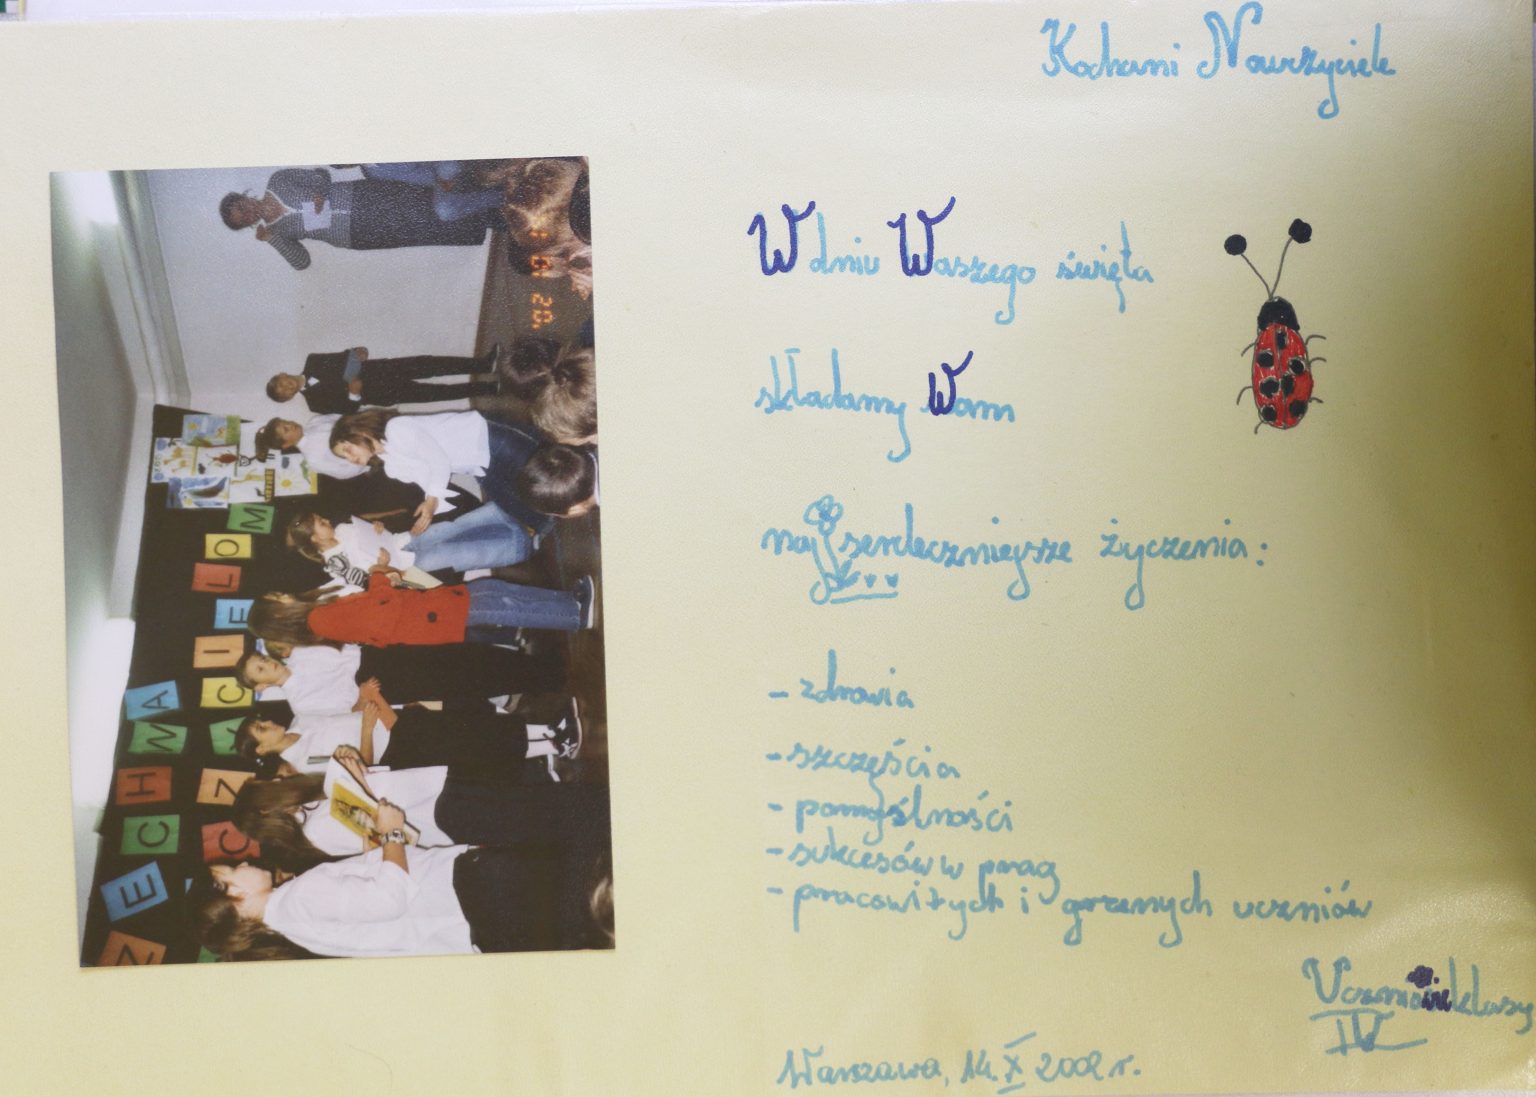 Kochani Nauczyciele
W dniu Waszego święta
składamy Wam
najserdeczniejsze życzenia:
- zdrowia
- szczęścia
- pomyślności
- sukcesów w pracy
- pracowitych i grzecznych uczniów
Uczniowie klasy
IV
Warszawa, 14. X 2002 r.
ZECHNA
CZYCIELOM